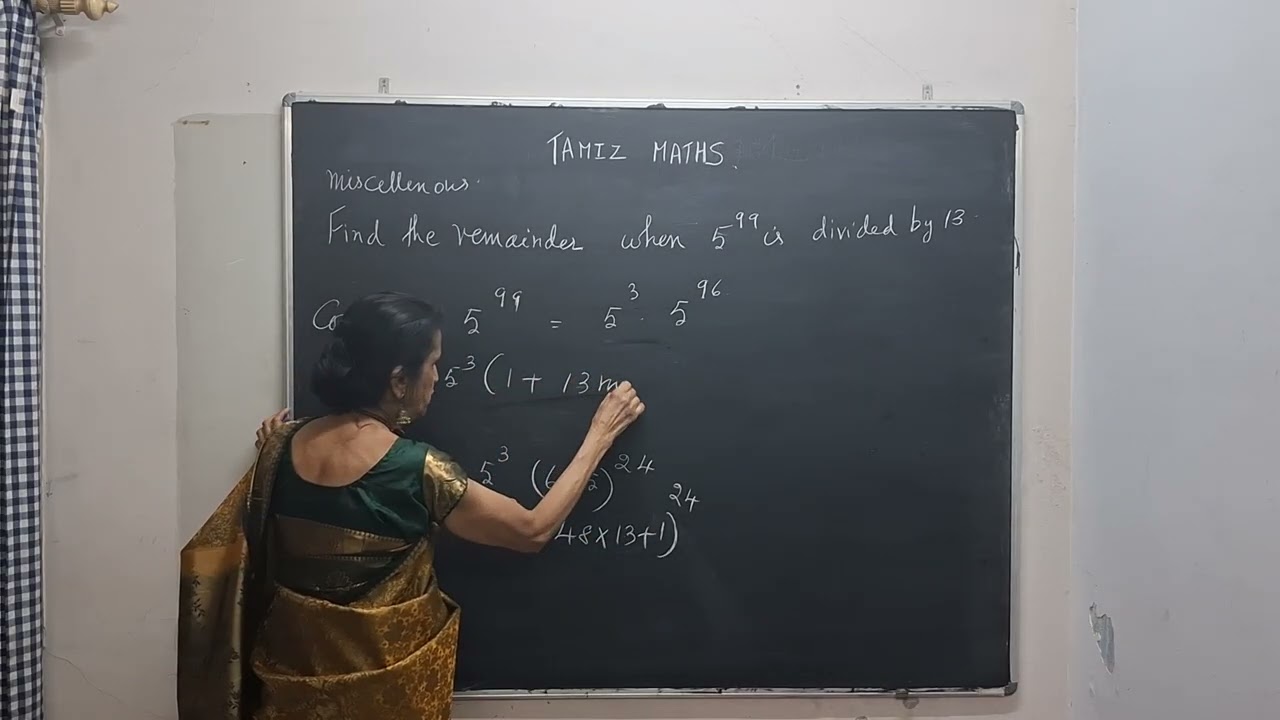 TAMIZ MATHS.
Miscellenous.
Find the remainder when 5^99 is divided by 13.
5^99 = 5^3 . 5^96
5^3 (1 + 13m
5^3 ( )^24
48×13+1)^24